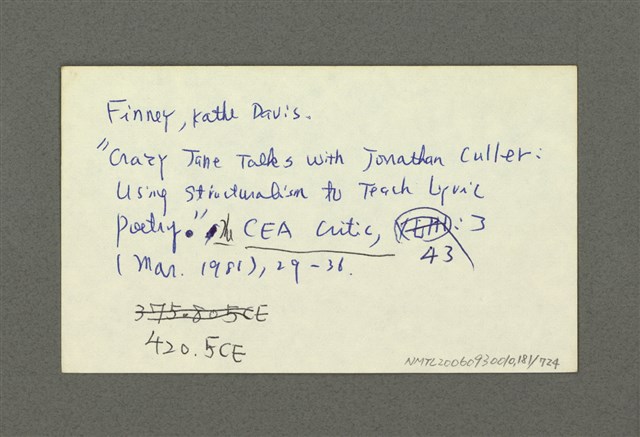 Finney, Kathe Davis.
"Crazy Jane Talks with Jonathan Culler:
Using Structuralism to Teach Lyric
Poetry." The CEA Critic, : 3
43
(Mar. 1981), 29-36.
375.805CE
420.5CE
NMTL20060930010,181/724